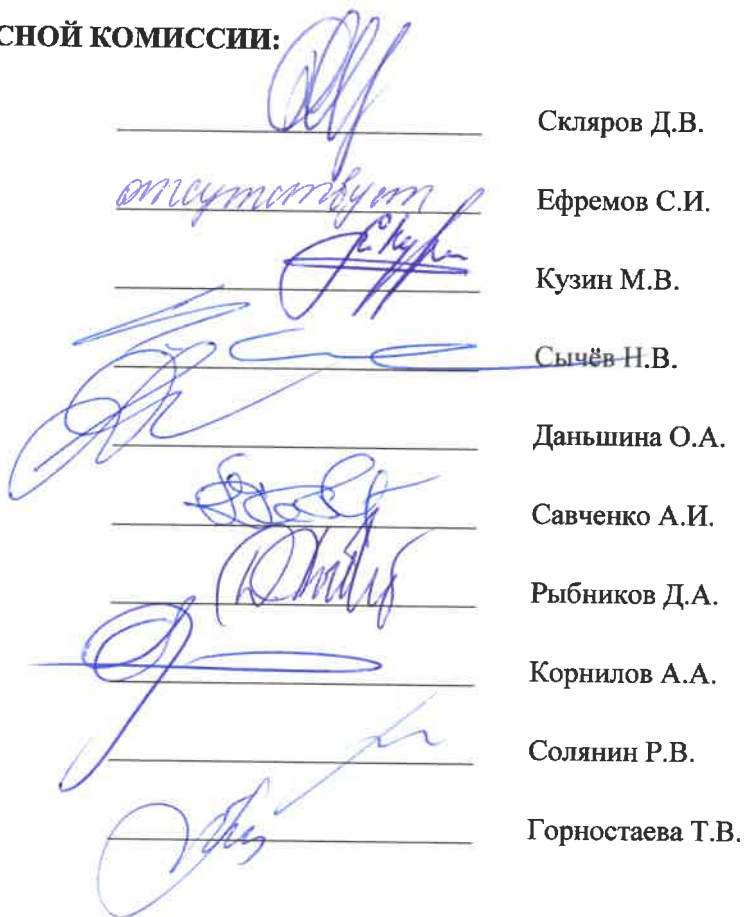 СНОЙ КОМИССИИ:
Скляров Д.В.
отсутствует Ефремов С.И.
Кузин М.В.
Сычёв Н.В.
Даньшина О.А.
Савченко А.И.
Рыбников Д.А.
Корнилов А.А.
Солянин Р.В.
Горностаева Т.В.